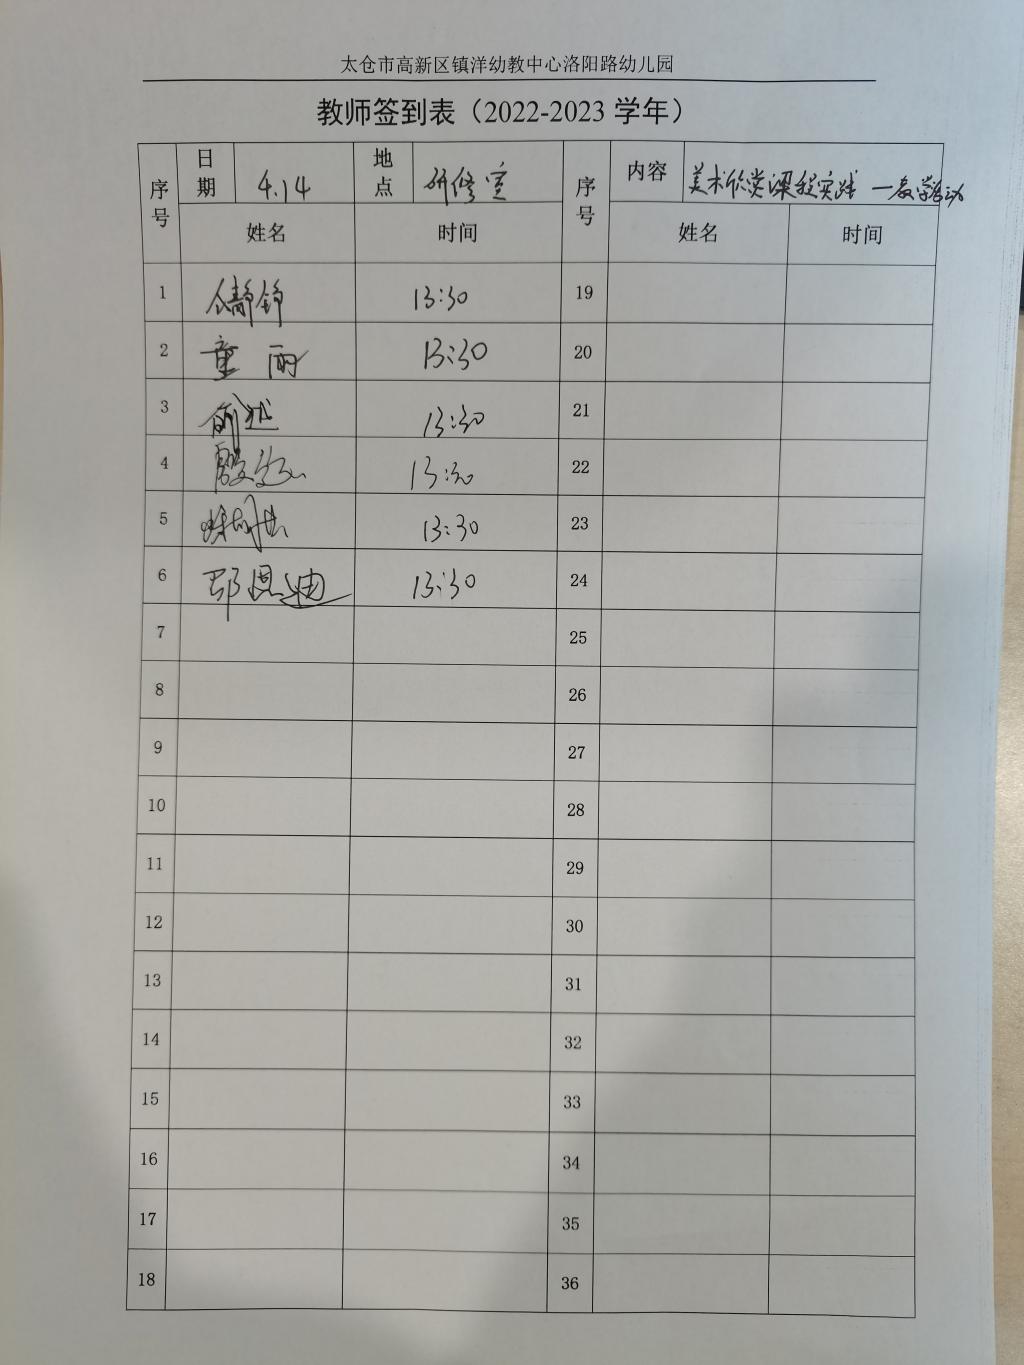 太仓市高新区镇洋幼教中心洛阳路幼儿园
教师签到表（2022-2023 学年）
序号 日期 4.14 地点 研修室 序号 内容 美术欣赏课程实践 一教学活动
姓名 时间 姓名 时间
1 13:30 19
2 童丽 13:30 20
3 13:30 21
4 13:30 22
5 13:30 23
6 邵思迪 13:30 24
7 25
8 26
9 27
10 28
11 29
12 30
13 31
14 32
15 33
16 34
17 35
18 36